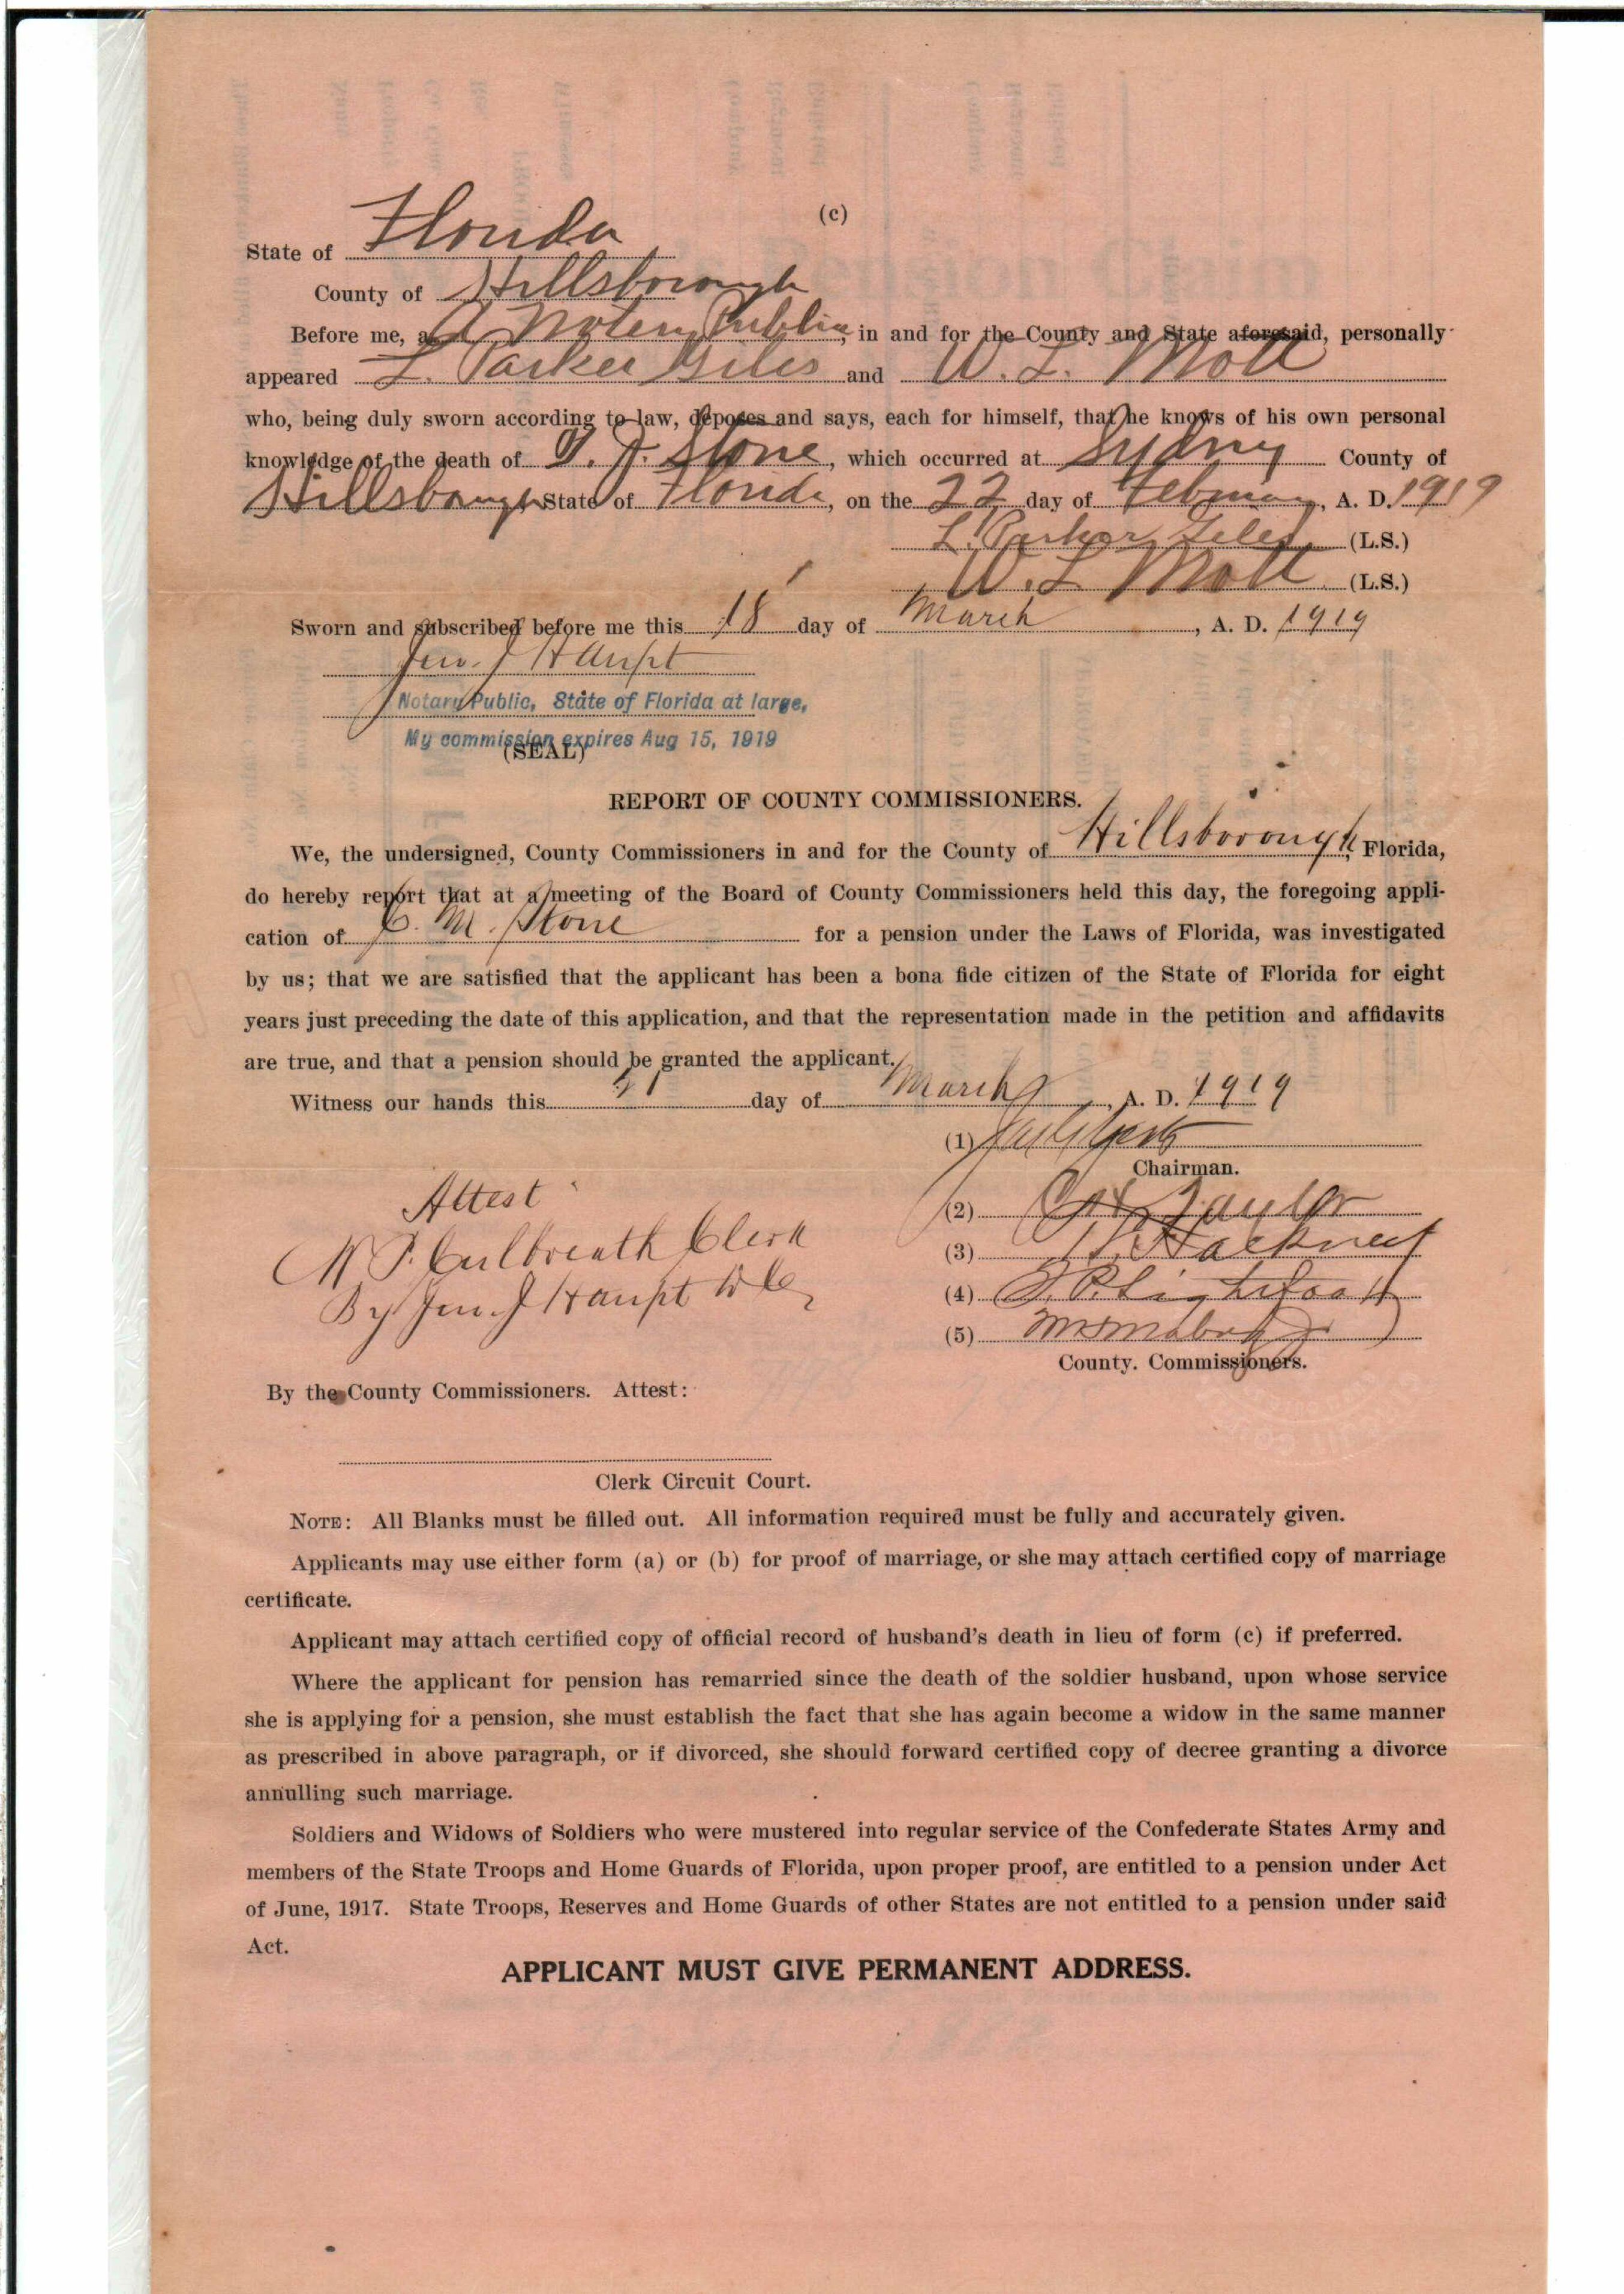 (c)
State of Florida
County of Hillsborough
Before me, a A Notary Public, in and for the County and State aforesaid, personally
appeared L. Parker Giles and W. L. Mott
who, being duly sworn according to law, deposes and says, each for himself, that he knows of his own personal
knowledge of the death of Stone, which occurred at Sydny County of
Hillsborough State of Florida, on the 22 day of February, A. D. 1919
L. Parker Giles (L.S.)
W. L. Mott (L.S.)
Sworn and subscribed before me this 18 day of March, A. D. 1919
Jno. J Haupt
Notary Public, State of Florida at large,
My commission expires Aug 15, 1919
(SEAL)
REPORT OF COUNTY COMMISSIONERS.
We, the undersigned, County Commissioners in and for the County of Hillsborough, Florida,
do hereby report that at a meeting of the Board of County Commissioners held this day, the foregoing appli-
cation of M. Stone for a pension under the Laws of Florida, was investigated
by us; that we are satisfied that the applicant has been a bona fide citizen of the State of Florida for eight
years just preceding the date of this application, and that the representation made in the petition and affidavits
are true, and that a pension should be granted the applicant.
Witness our hands this 21 day of March, A. D. 1919
(1)
Chairman.
Attest
(2) Taylor
W P. Culbreath Clerk
(3) Hackney
By Jno. J Haupt D C
(4) Lightfoot
(5) Mabry
County. Commissioners.
By the County Commissioners. Attest:
Clerk Circuit Court.
NOTE: All Blanks must be filled out. All information required must be fully and accurately given.
Applicants may use either form (a) or (b) for proof of marriage, or she may attach certified copy of marriage
certificate.
Applicant may attach certified copy of official record of husband's death in lieu of form (c) if preferred.
Where the applicant for pension has remarried since the death of the soldier husband, upon whose service
she is applying for a pension, she must establish the fact that she has again become a widow in the same manner
as prescribed in above paragraph, or if divorced, she should forward certified copy of decree granting a divorce
annulling such marriage.
Soldiers and Widows of Soldiers who were mustered into regular service of the Confederate States Army and
members of the State Troops and Home Guards of Florida, upon proper proof, are entitled to a pension under Act
of June, 1917. State Troops, Reserves and Home Guards of other States are not entitled to a pension under said
Act.
APPLICANT MUST GIVE PERMANENT ADDRESS.